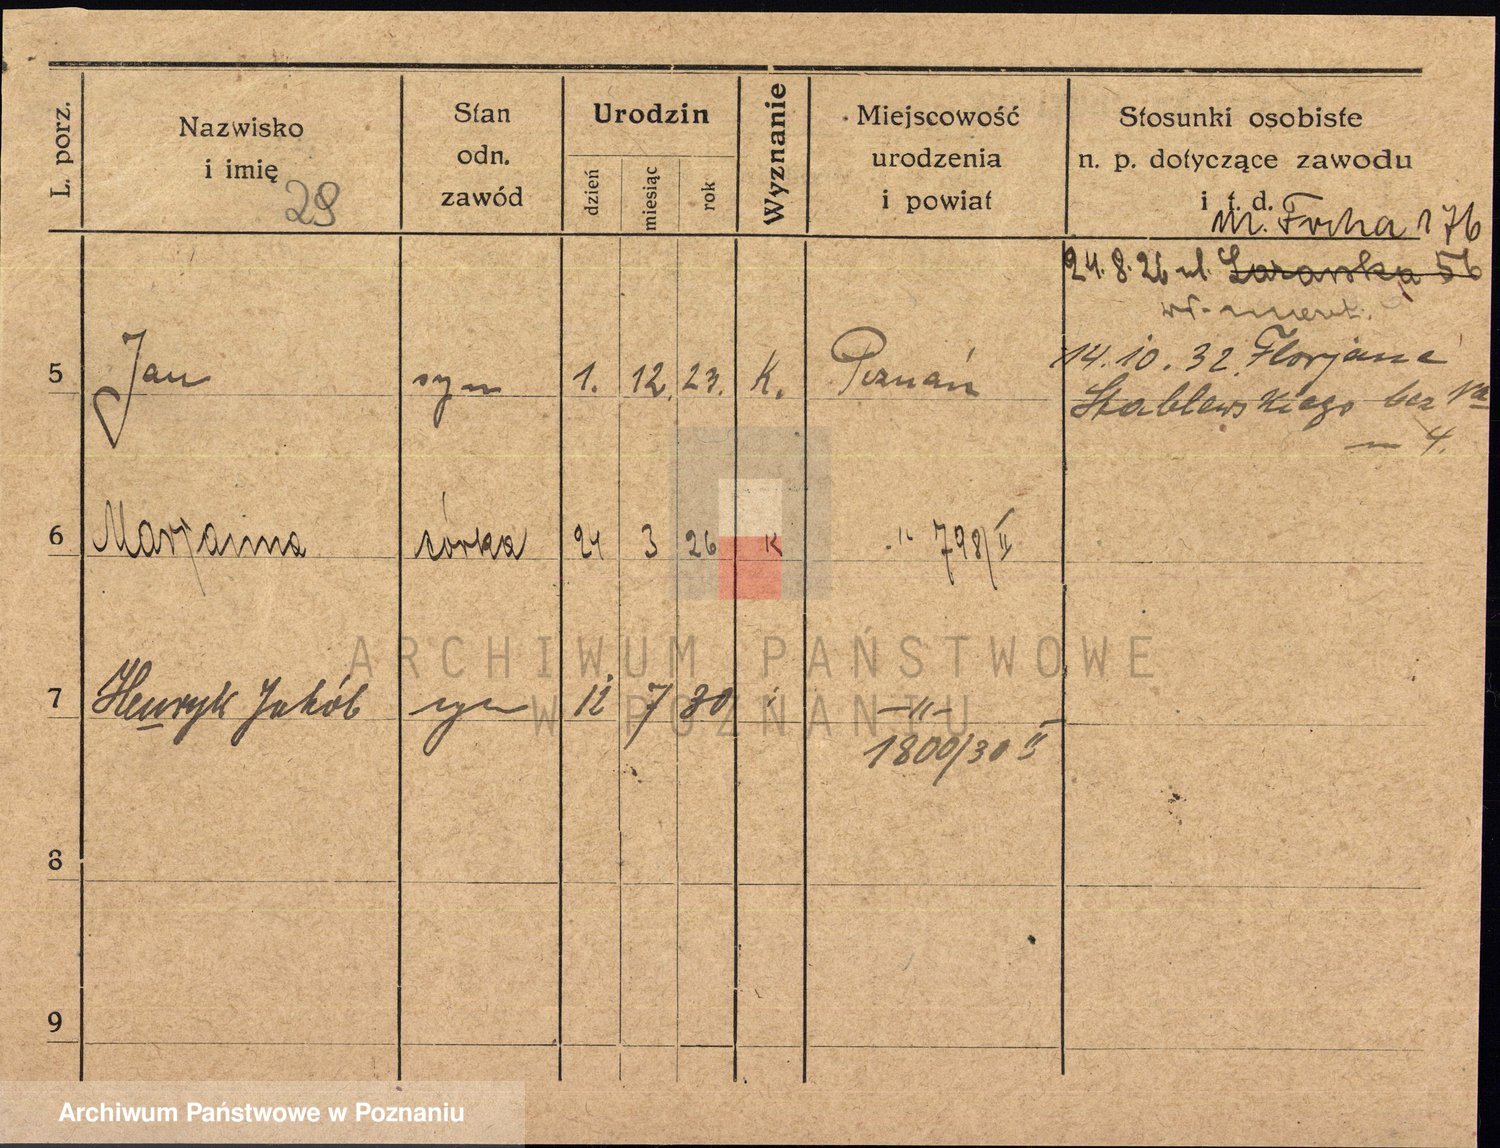 L. porz.
Nazwisko
i imię
29
Stan
odn.
zawód
Urodzin
dzień
miesiąc
rok
Wyznanie
Miejscowość
urodzenia
i powiat
Stosunki osobiste
n. p. dotyczące zawodu
i t. d.
Focha 176
24.8.26 ul. 56
14.10.32. Florjana
Stablewskiego
4.
5 Jan syn 1. 12. 23. K. Poznań
6 Marjanna córka 24 3 26 K " 798/II
7 Henryk Jakób syn 12 7 30 -"-
1800/30 II
8
9
ARCHIWUM PAŃSTWOWE
W POZNANIU
Archiwum Państwowe w Poznaniu